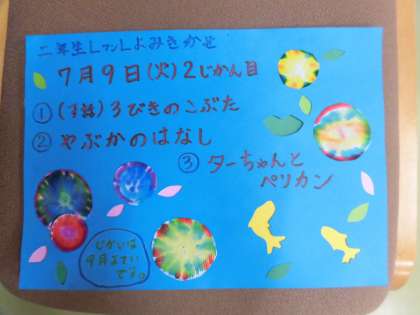 二年生 よみきかせ
7月9日(火)2じかん目
①(す話)3びきのこぶた
②やぶかのはなし
③ターちゃんと
ペリカン
じかいは
9月よてい
です。